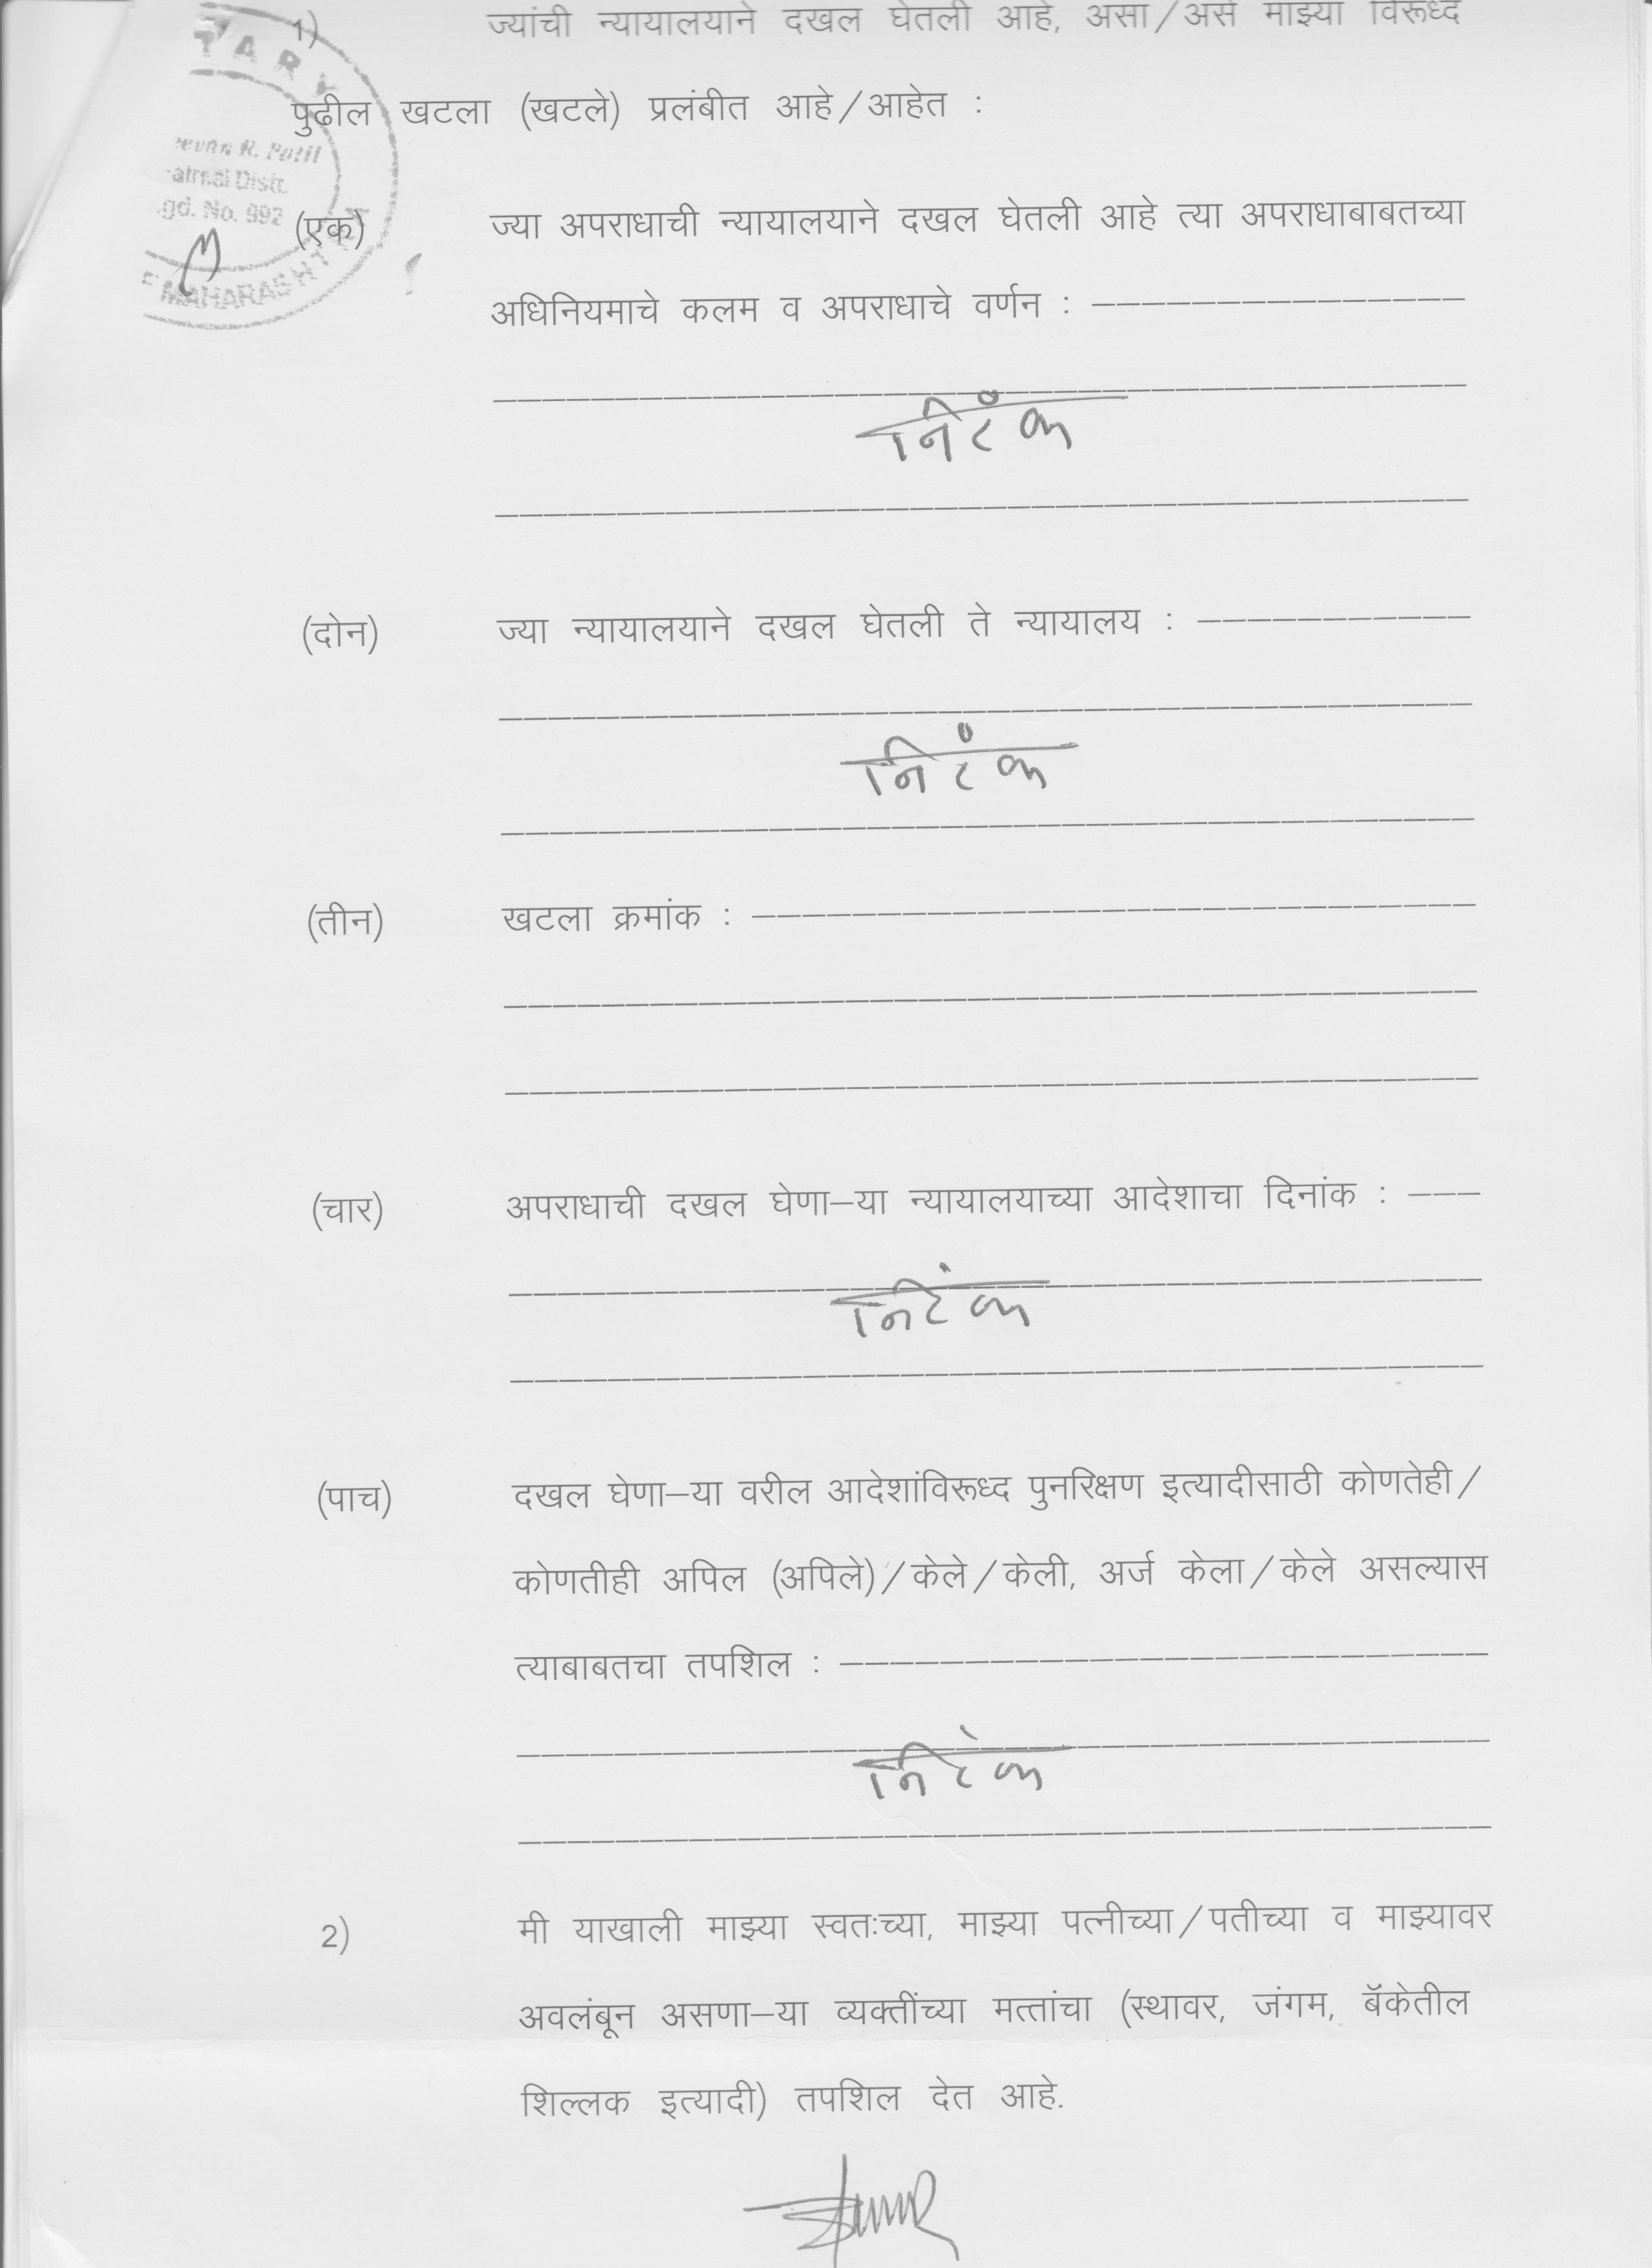 1) ज्यांची न्यायालयाने दखल घेतली आहे, असा/असे माझ्या विरूध्द
पुढील खटला (खटले) प्रलंबीत आहे/आहेत :
TARY
R. Patil
Distt.
gd. No. 992
MAHARASHT
(एक) ज्या अपराधाची न्यायालयाने दखल घेतली आहे त्या अपराधाबाबतच्या
अधिनियमाचे कलम व अपराधाचे वर्णन : ---------------
निरंक
(दोन) ज्या न्यायालयाने दखल घेतली ते न्यायालय : -----------
निरंक
(तीन) खटला क्रमांक : -----------------------------
(चार) अपराधाची दखल घेणा-या न्यायालयाच्या आदेशाचा दिनांक : ---
निरंक
(पाच) दखल घेणा-या वरील आदेशांविरूध्द पुनरिक्षण इत्यादीसाठी कोणतेही/
कोणतीही अपिल (अपिले)/केले/केली, अर्ज केला/केले असल्यास
त्याबाबतचा तपशिल : --------------------------
निरंक
2) मी याखाली माझ्या स्वतःच्या, माझ्या पत्नीच्या/पतीच्या व माझ्यावर
अवलंबून असणा-या व्यक्तींच्या मत्तांचा (स्थावर, जंगम, बॅकेतील
शिल्लक इत्यादी) तपशिल देत आहे.